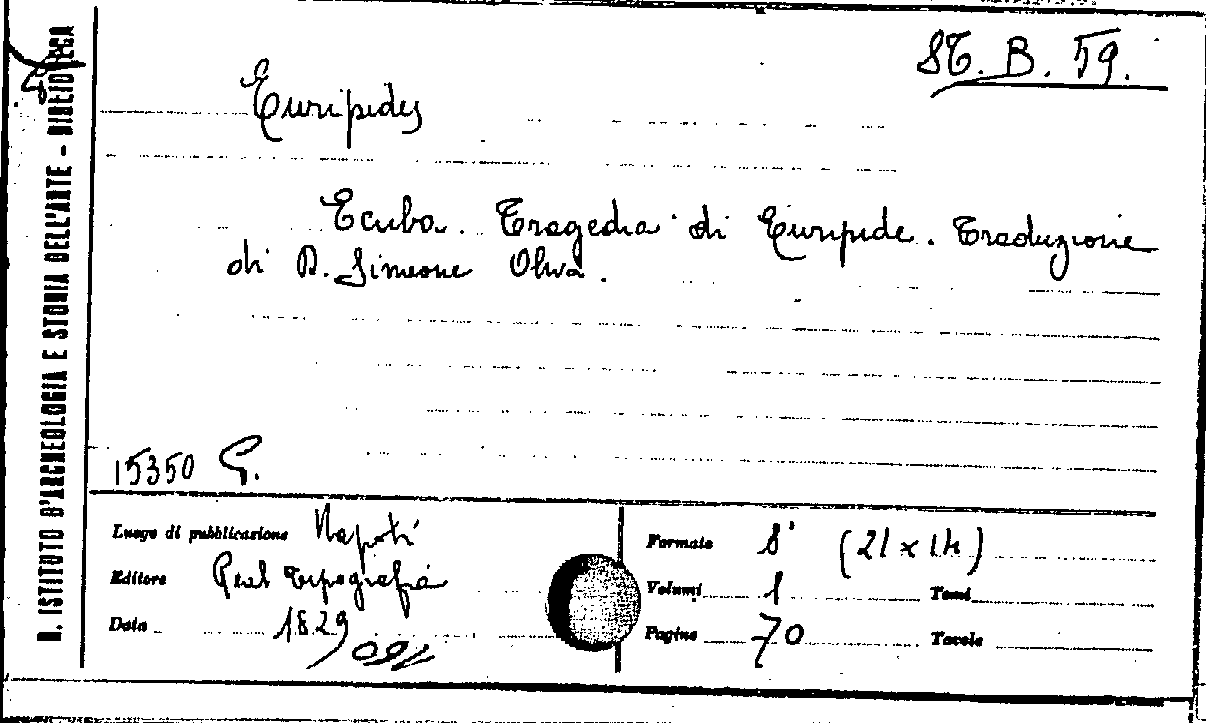 R. ISTITUTO D'ARCHEOLOGIA E STORIA DELL'ARTE - BIBLIOTECA
ST. B. 59.
Euripides
Ecuba. Tragedia di Euripide. Traduzione
di D. Simeone Oliva.
15350 G.
Luogo di pubblicazione Napoli
Editore Real Tipografia
Data 1829
Formato 8° (21 x 14)
Volumi 1 Tomi
Pagine 70 Tavole